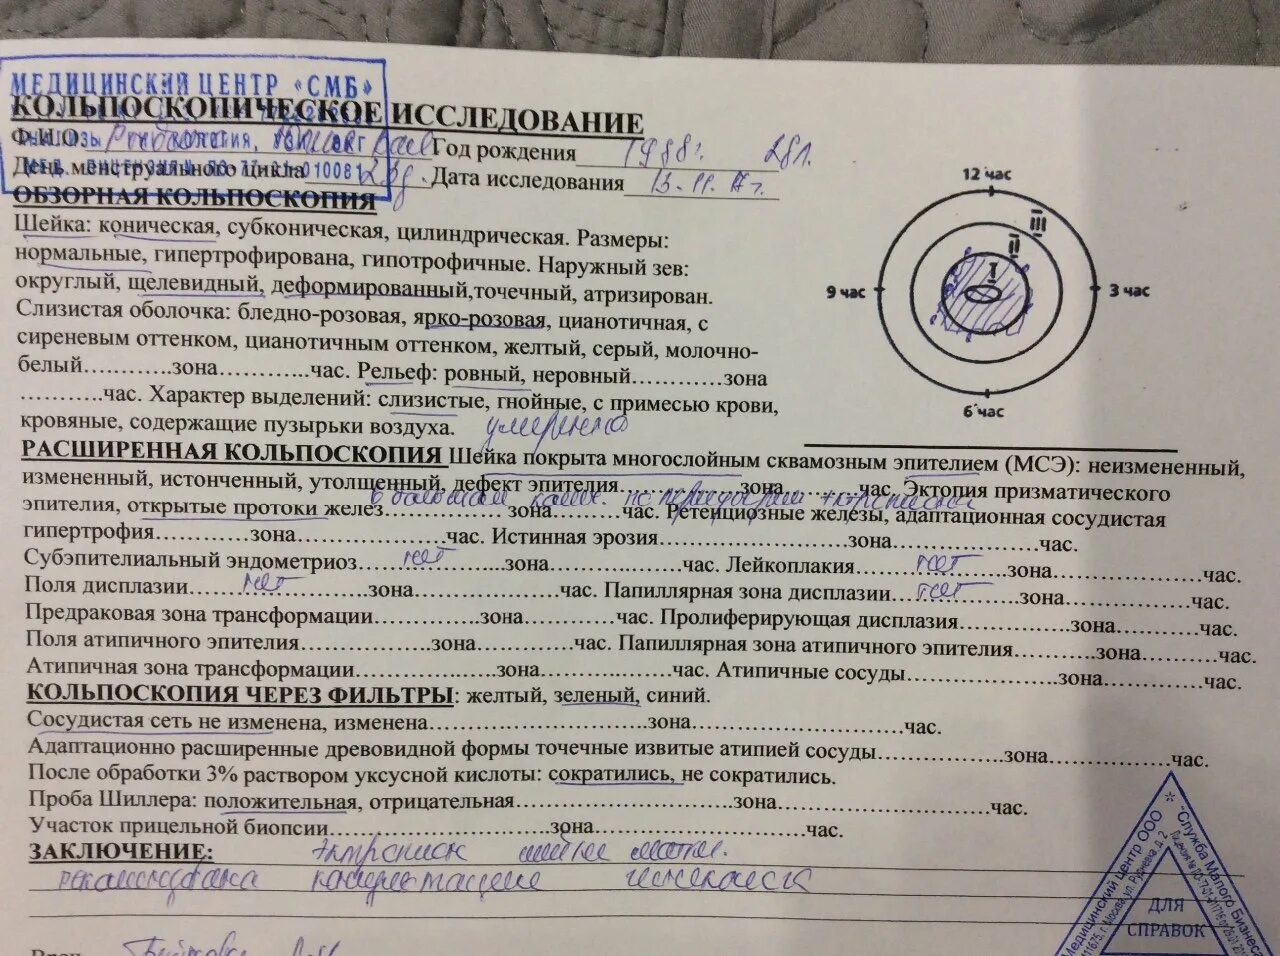 МЕДИЦИНСКИЙ ЦЕНТР «СМБ»
КОЛЬПОСКОПИЧЕСКОЕ ИССЛЕДОВАНИЕ
Ф.И.О. Год рождения 1988г. 28л.
День менструального цикла 23д. Дата исследования 13.11.17г.
ОБЗОРНАЯ КОЛЬПОСКОПИЯ
Шейка: коническая, субконическая, цилиндрическая. Размеры:
нормальные, гипертрофирована, гипотрофичные. Наружный зев:
округлый, щелевидный, деформированный,точечный, атризирован.
Слизистая оболочка: бледно-розовая, ярко-розовая, цианотичная, с
сиреневым оттенком, цианотичным оттенком, желтый, серый, молочно-
белый............зона............час. Рельеф: ровный, неровный............зона
............час. Характер выделений: слизистые, гнойные, с примесью крови,
кровяные, содержащие пузырьки воздуха. умеренно
12 час
III
II
I
9 час
3 час
6 час
РАСШИРЕННАЯ КОЛЬПОСКОПИЯ Шейка покрыта многослойным сквамозным эпителием (МСЭ): неизмененный,
измененный, истонченный, утолщенный, дефект эпителия............зона............час. Эктопия призматического
в большом колич. по периферии эктропиона
эпителия, открытые протоки желез............зона............час. Ретенциозные железы, адаптационная сосудистая
гипертрофия............зона............час. Истинная эрозия............зона............час.
Субэпителиальный эндометриоз нет зона............час. Лейкоплакия нет зона............час.
Поля дисплазии нет зона............час. Папиллярная зона дисплазии нет зона............час.
Предраковая зона трансформации............зона............час. Пролиферирующая дисплазия............зона............час.
Поля атипичного эпителия............зона............час. Папиллярная зона атипичного эпителия............зона............час.
Атипичная зона трансформации............зона............час. Атипичные сосуды............зона............час.
КОЛЬПОСКОПИЯ ЧЕРЕЗ ФИЛЬТРЫ: желтый, зеленый, синий.
Сосудистая сеть не изменена, изменена............зона............час.
Адаптационно расширенные древовидной формы точечные извитые атипией сосуды............зона............час.
После обработки 3% раствором уксусной кислоты: сократились, не сократились.
Проба Шиллера: положительная, отрицательная............зона............час.
Участок прицельной биопсии............зона............час.
ЗАКЛЮЧЕНИЕ: Эктропион шейки матки.
рекомендована консультация
Врач
Медицинский центр ООО * "Служба Малого Бизнеса
ДЛЯ
СПРАВОК